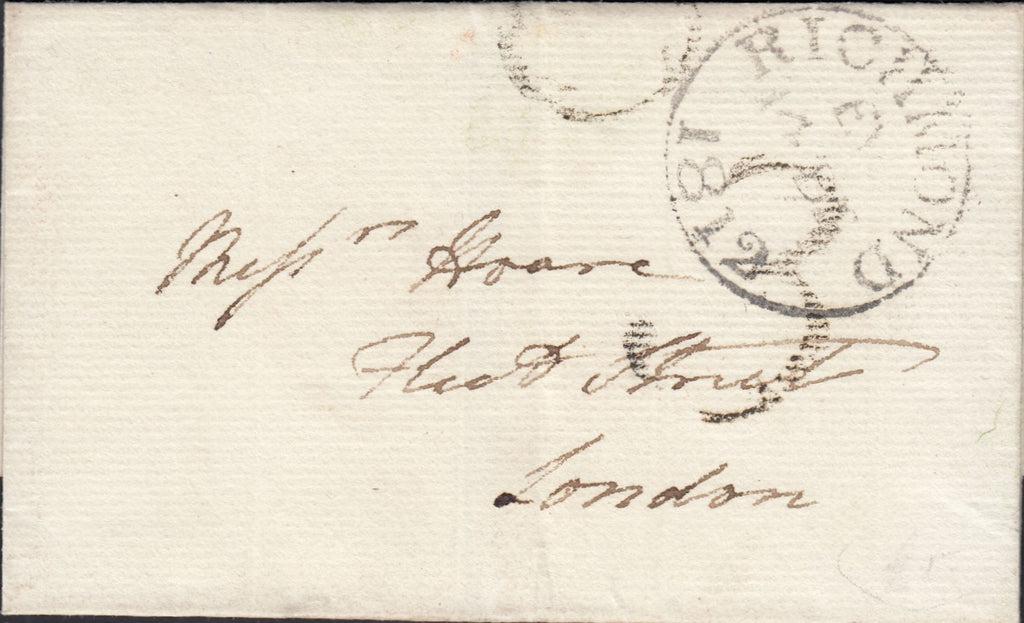 RICHMOND
E
181
2
3
Messrs Hoare
Fleet Street
London